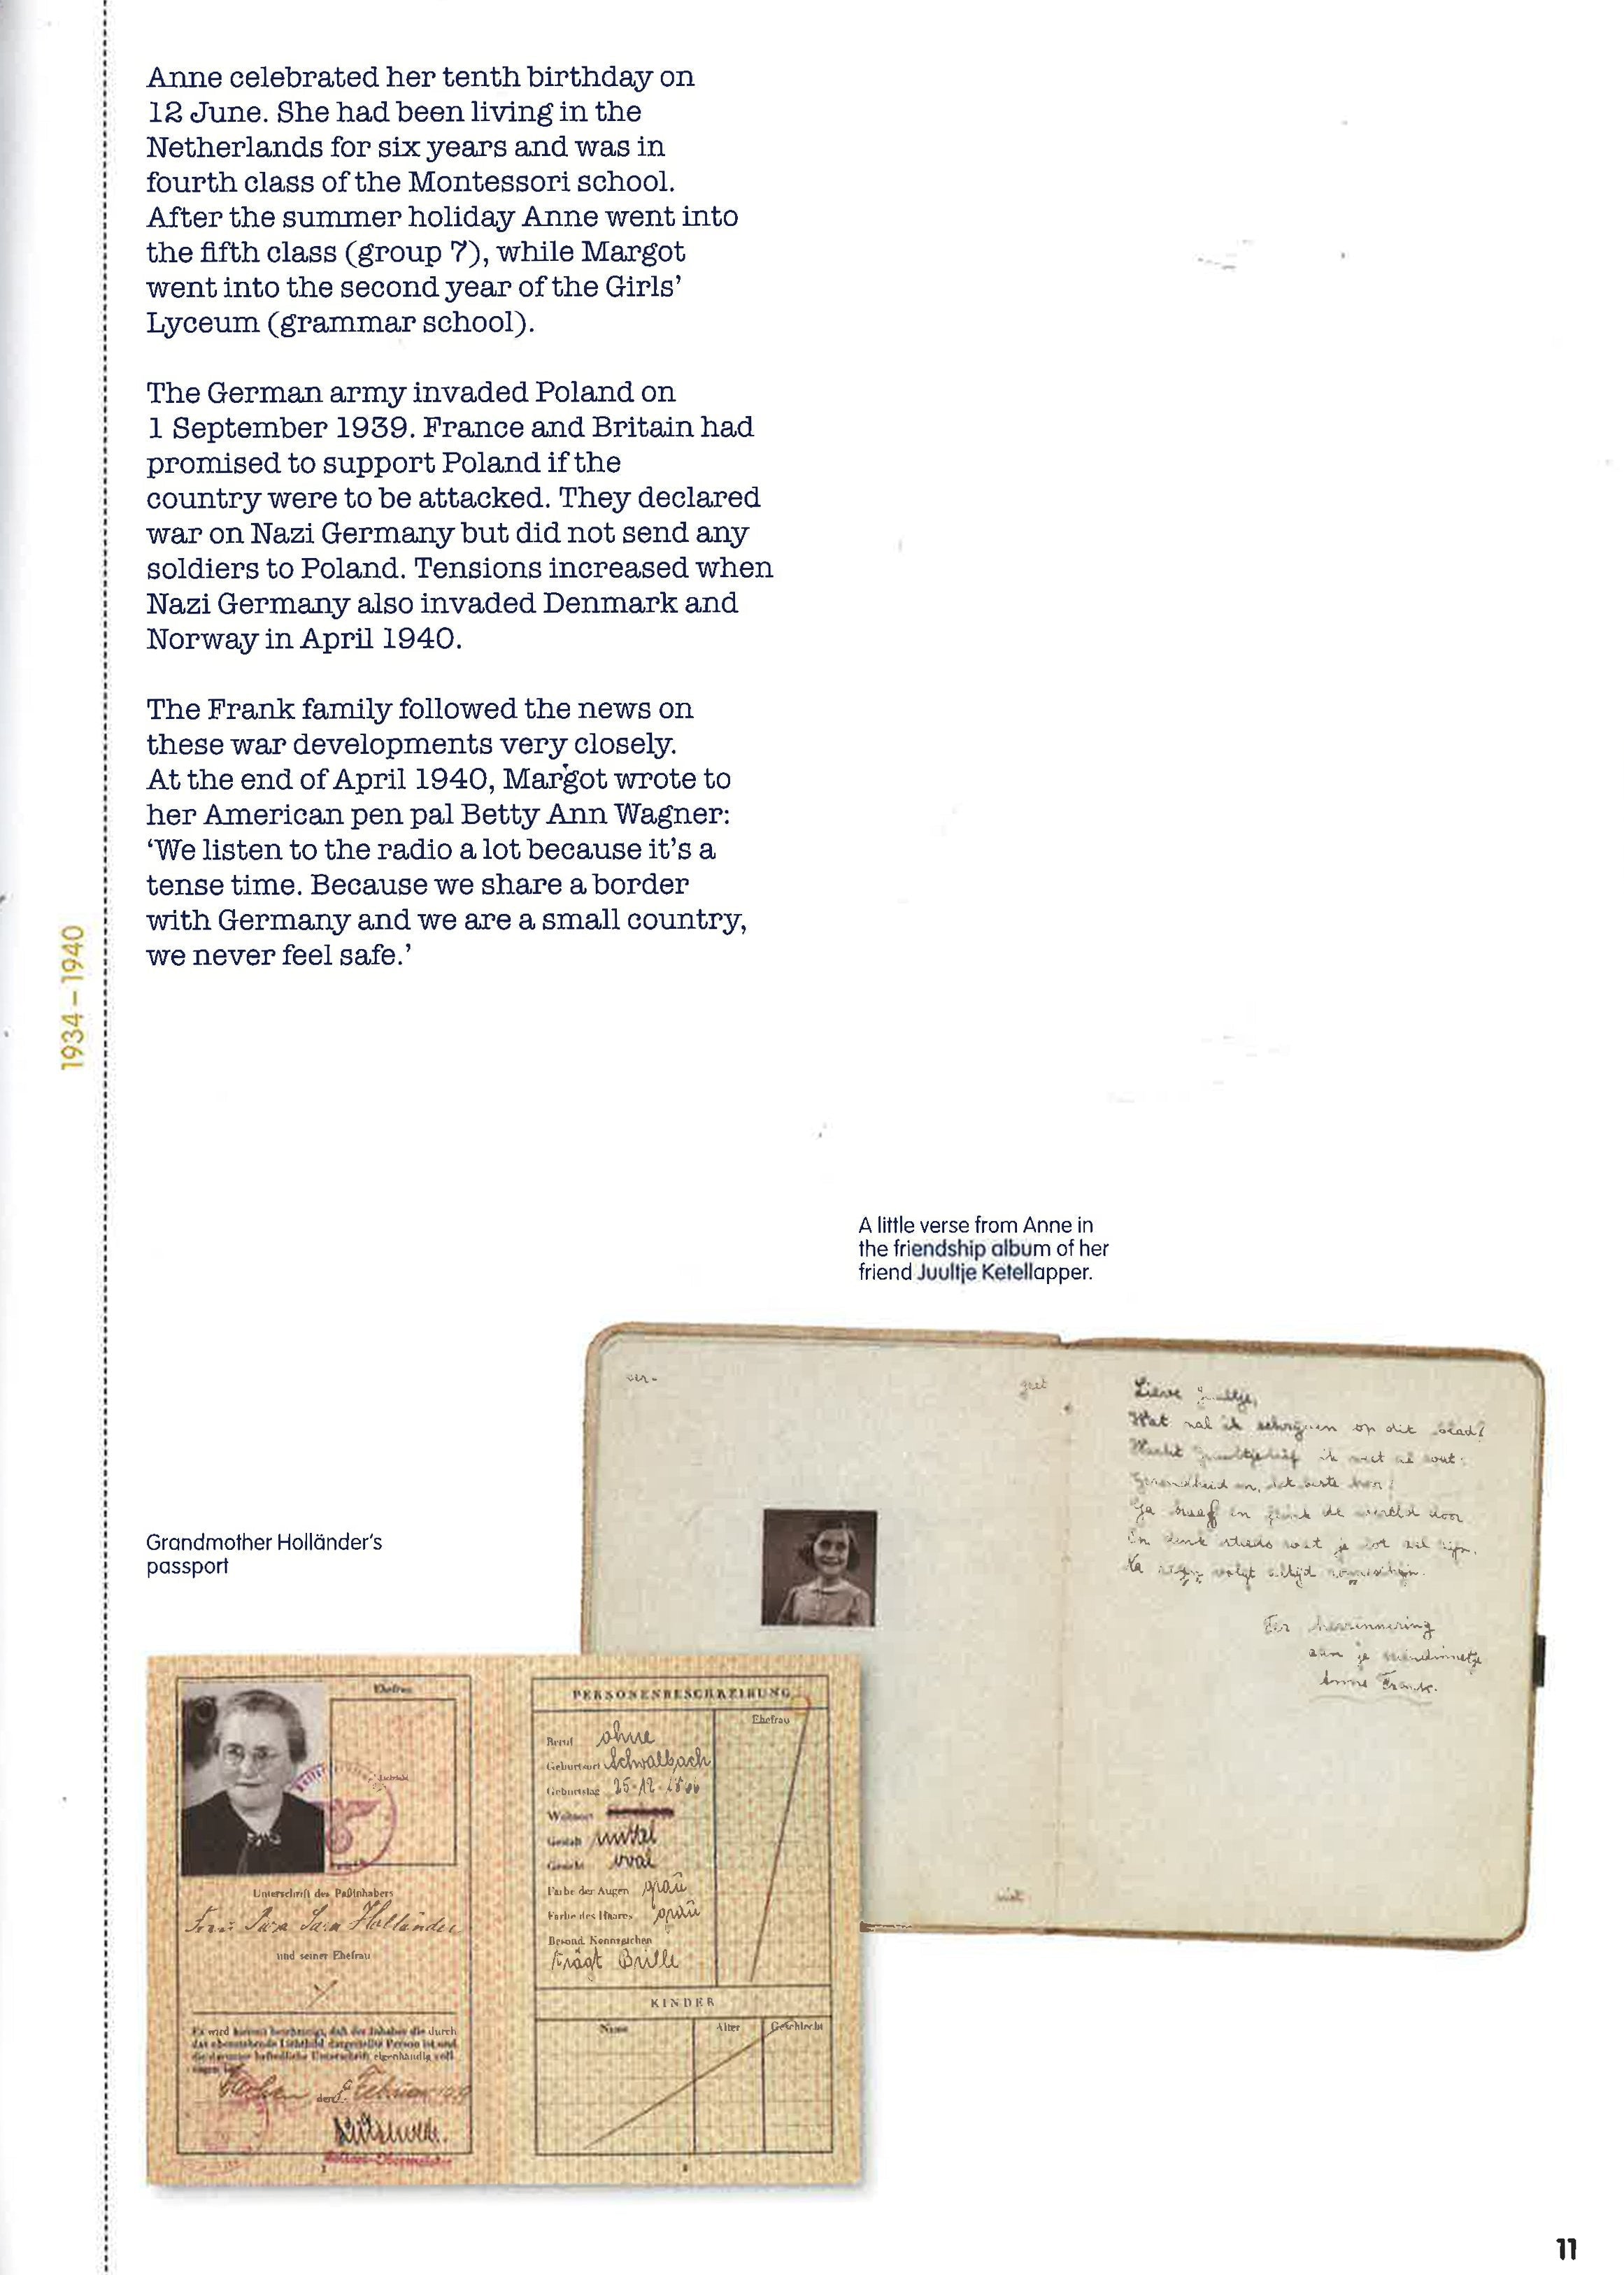 Anne celebrated her tenth birthday on
12 June. She had been living in the
Netherlands for six years and was in
fourth class of the Montessori school.
After the summer holiday Anne went into
the fifth class (group 7), while Margot
went into the second year of the Girls'
Lyceum (grammar school).
The German army invaded Poland on
1 September 1939. France and Britain had
promised to support Poland if the
country were to be attacked. They declared
war on Nazi Germany but did not send any
soldiers to Poland. Tensions increased when
Nazi Germany also invaded Denmark and
Norway in April 1940.
The Frank family followed the news on
these war developments very closely.
At the end of April 1940, Margot wrote to
her American pen pal Betty Ann Wagner:
‘We listen to the radio a lot because it's a
tense time. Because we share a border
with Germany and we are a small country,
we never feel safe.’
1934 – 1940
A little verse from Anne in
the friendship album of her
friend Juultje Ketellapper.
ver-
geet
Lieve Juultje,
Wat zal ik schrijven op dit blad?
ik weet al wat:
Ga braaf en flink de wereld door
En denk steeds wat je lot zal zijn.
Na regen volgt altijd zonneschijn.
Ter herrinnering
aan je vriendinnetje
Anne Frank.
niet
Grandmother Holländer's
passport
Ehefrau
Unterschrift des Paßinhabers
Sara Holländer
und seiner Ehefrau
Es wird hiermit bescheinigt, daß der Inhaber die durch
das obenstehende Lichtbild dargestellte Person ist und
die darunter befindliche Unterschrift eigenhändig voll-
zogen hat.
den Februar
PERSONENBESCHREIBUNG
Ehefrau
Beruf ohne
Geburtsort Schwalbach
Geburtstag 25.12.
Wohnort
Gestalt mittel
Gesicht oval
Farbe der Augen grau
Farbe des Haares grau
Besond. Kennzeichen
trägt Brille
KINDER
Name Alter Geschlecht
11